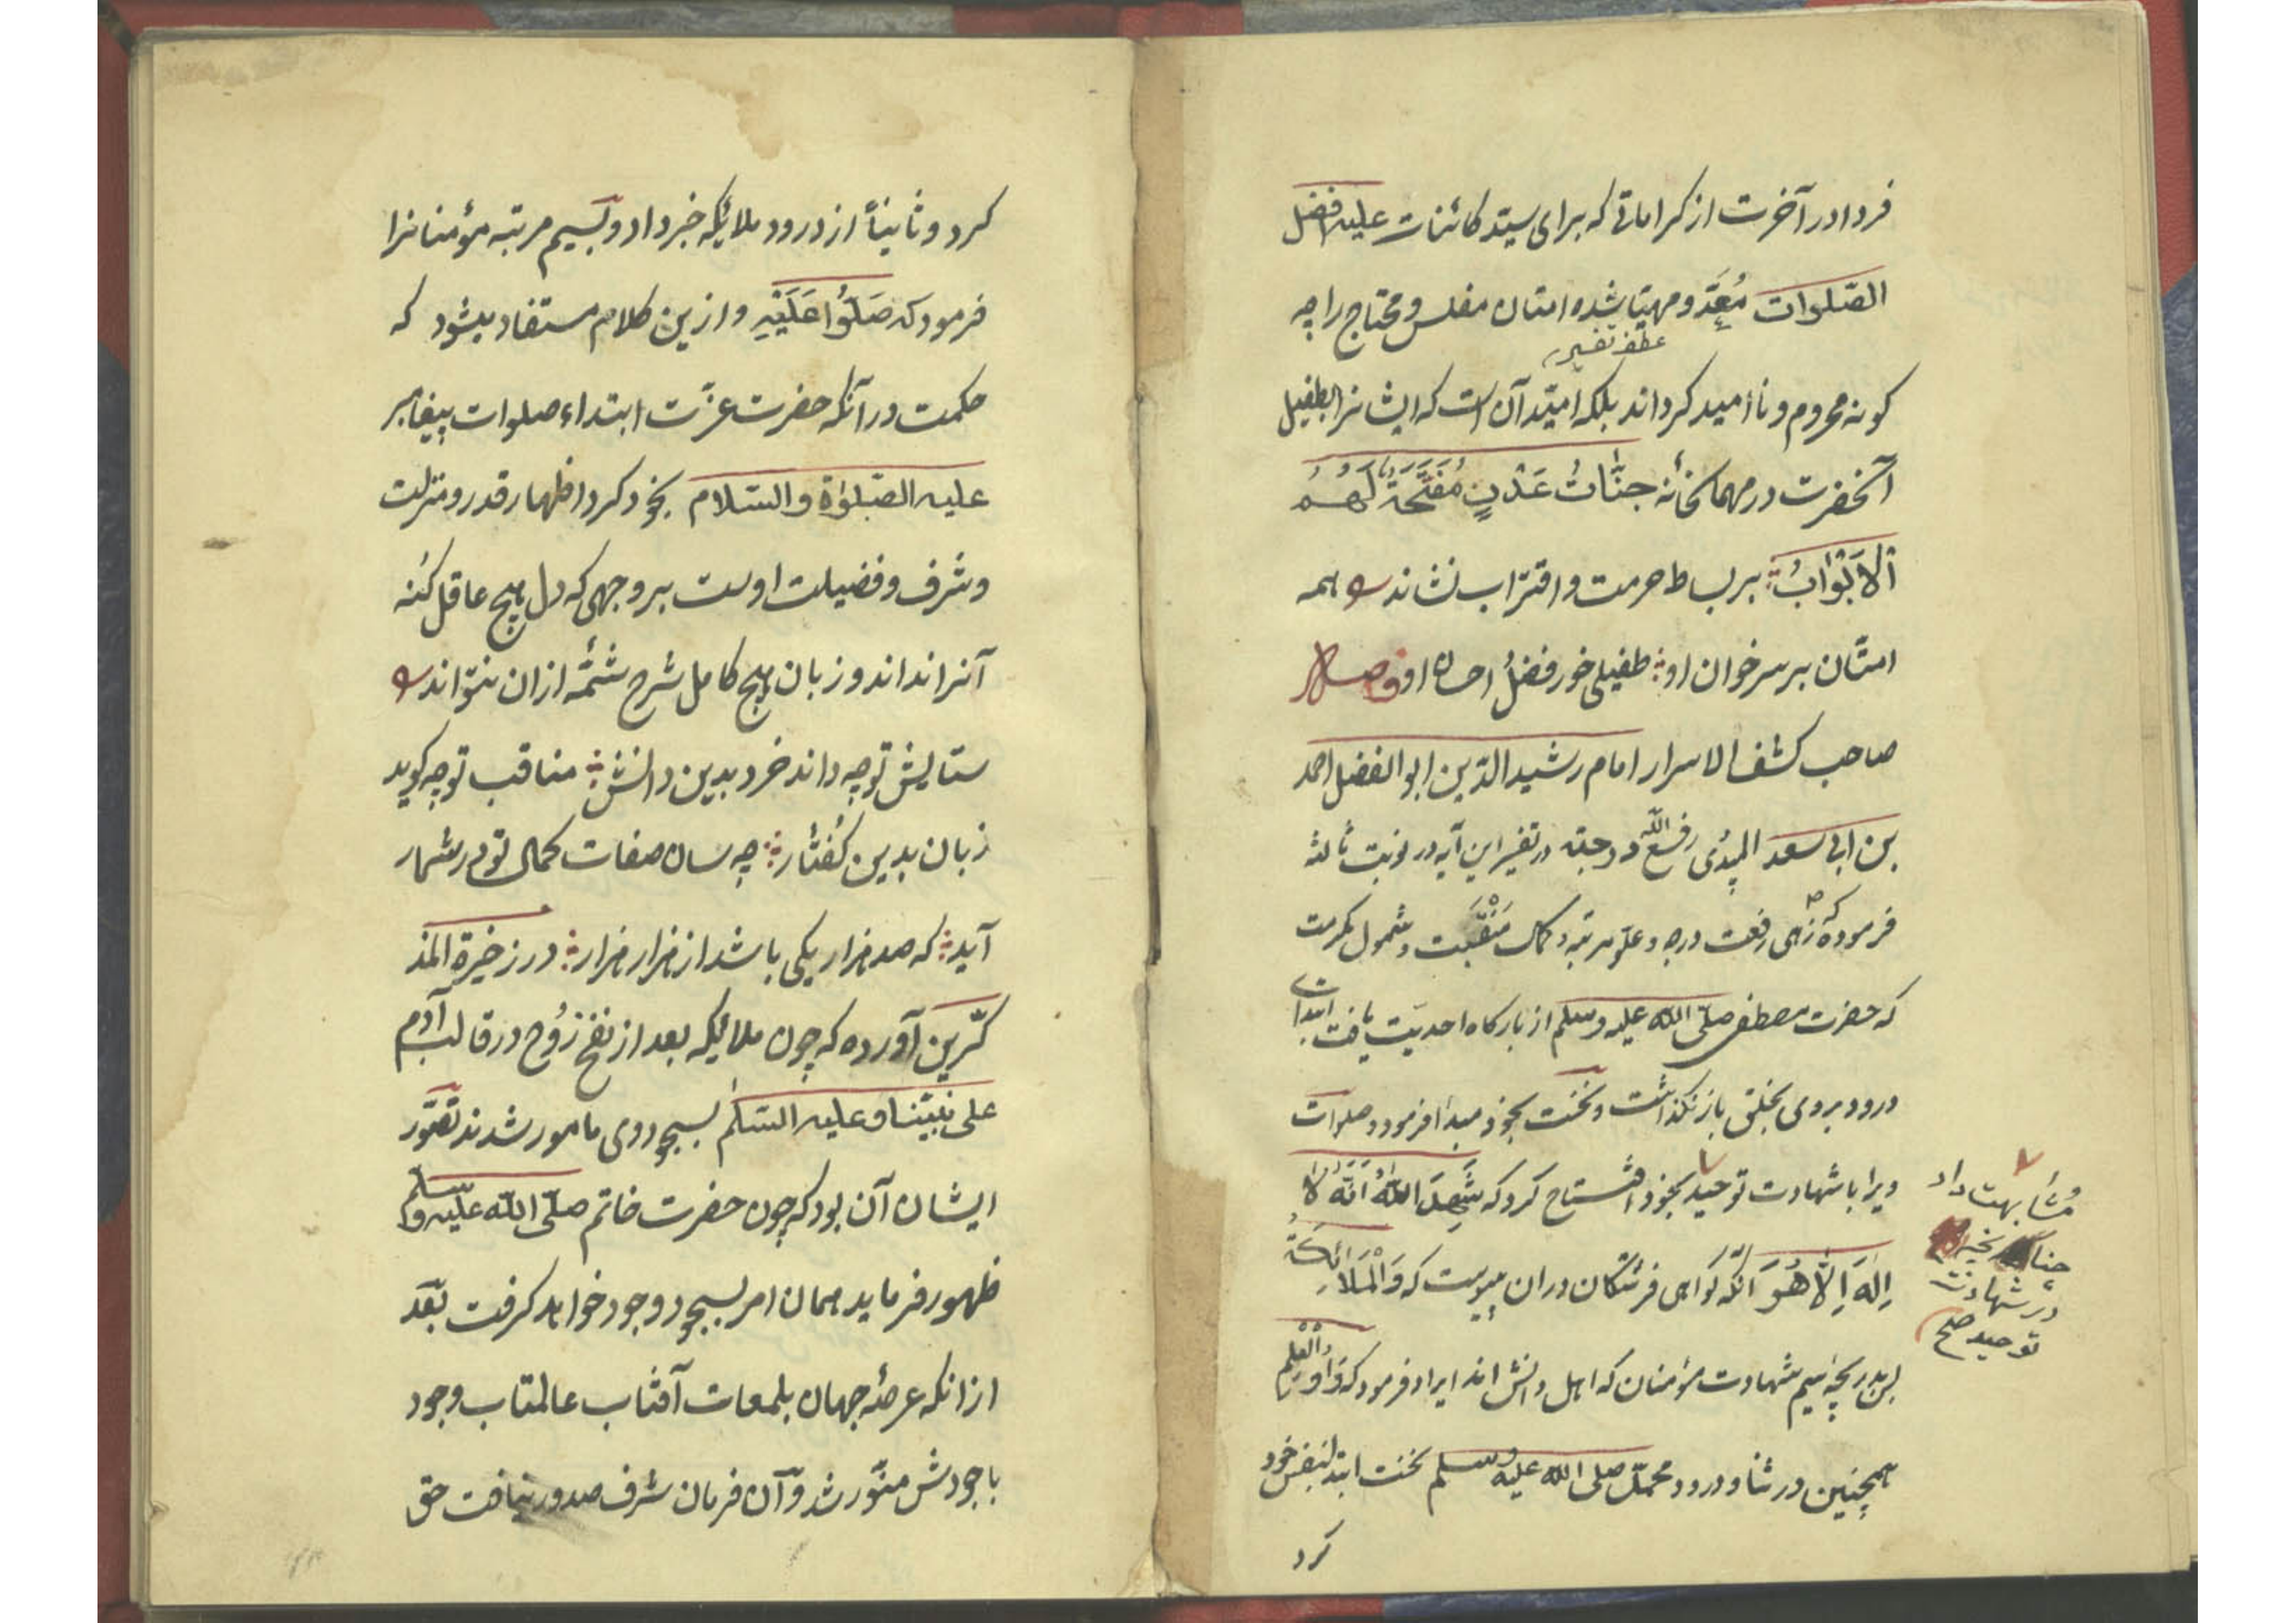 فردا در آخرت از کراماتی که برای سیّد کائنات علیه افضل
الصّلوات مُعَدّ و مهیّا شده امتان مفلس و محتاج را چه
عطف تفسیر
کونه محروم و ناامید کرداند بلکه امیّد آن است که ایشانرا بطفیل
آنحضرت در مهمانخانه جنّات عَدْنٍ مُفَتَّحَةً لَهُمُ
الْاَبْوَابُ بر بساط حرمت و اقتراب نشاند همه
امتان بر سر خوان او طفیلی خور فضل احسان او
صاحب کشف الاسرار امام رشید الدّین ابو الفضل احمد
بن ابی سعد المیبدی رفع الله درجته در تفسیر این آیه در نوبت ثالثه
فرموده که زهی رفعت درجه و علوّ مرتبه و کمال مَنْقَبَت و شمول مکرمت
که حضرت مصطفی صلّی الله علیه وسلم از بارکاه احدیّت یافت ابتداء
درود بر وی بخلق باز نکذاشت و نخست بخود مبدا فرمود و صلوات
ویرا با شهادت توحید بخود افتتاح کرد که شَهِدَ اللهُ اَنَّهُ لَا
اِلٰهَ اِلَّا هُوَ آنکه کواهی فرشتکان در ان پیوست که وَالْمَلَائِكَةُ
پس بدرجه سیم شهادت مؤمنان که اهل دانش اند ایراد فرمود که وَاُولُوا الْعِلْمِ
همچنین در ثنا و درود محمّد صلی الله علیه وسلم نخست ابتدا بنفس خود
کرد
مشابهت داد
چنانچه
در شهادت
توحید صح
کرد و ثانیاً از درود ملائیکه خبر داد و بسیم مرتبه مؤمنانرا
فرمود که صَلُّوا عَلَيْهِ و ازین کلام مستفاد میشود که
حکمت در آنکه حضرت عزّت ابتداء صلوات پیغامبر
علیه الصّلوٰة والسّلام بخود کرد اظهار قدر و منزلت
و شرف و فضیلت اوست بر وجهی که دل هیچ عاقل کُنه
آنرا نداند و زبان هیچ کامل شرح شمّه ازان نتواند
ستایش تو چه داند خرد بدین دانش مناقب تو چه کوید
زبان بدین کفتار چه سان صفات کمال تو در شمار
آید که صد هزار یکی باشد از هزار هزار در زخیرة المذ
کّرین آورده که چون ملائیکه بعد از نفخ رُوح در قالب آدم
علی نبیّنا و علیه السّلام بسجود وی مامور شدند تصوّر
ایشان آن بود که چون حضرت خاتم صلّی الله علیه وسلم
ظهور فرماید همان امر بسجود وجود خواهد کرفت بعد
ازانکه عرصهٔ جهان بلمعات آفتاب عالمتاب وجود
با جودش منوّر شد و آن فرمان شرف صدور نیافت حق